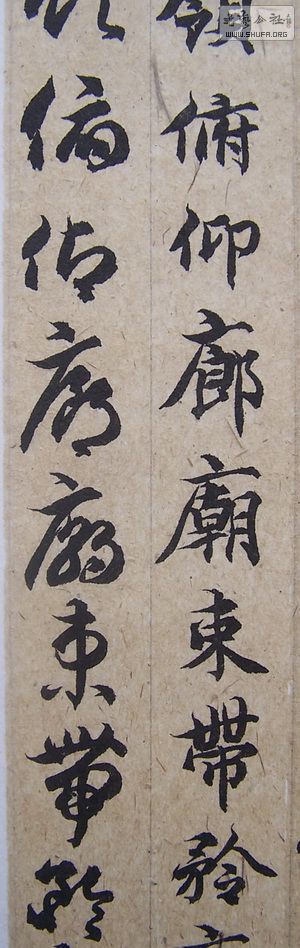 領俯仰廊廟束帶矜
俯仰廊廟束帶矜
書法会社
WWW.SHUFA.ORG